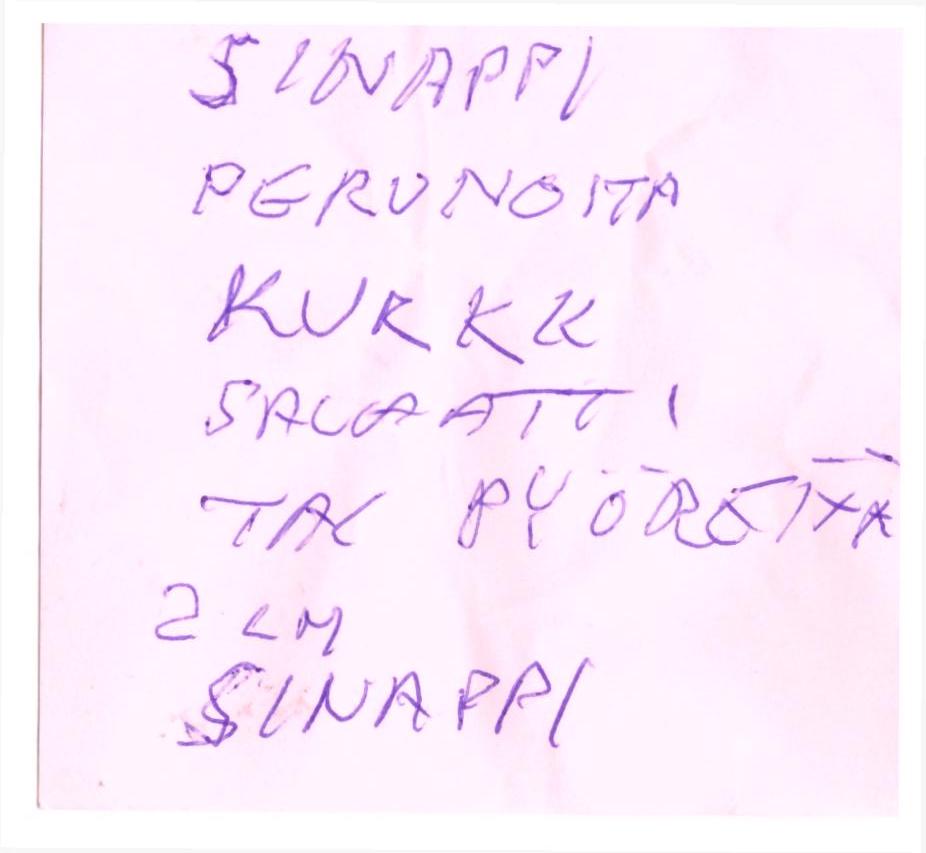 SINAPPI
PERUNOITA
KURKKU
SALAATTI
PYÖREITÄ
2 CM
SINAPPI